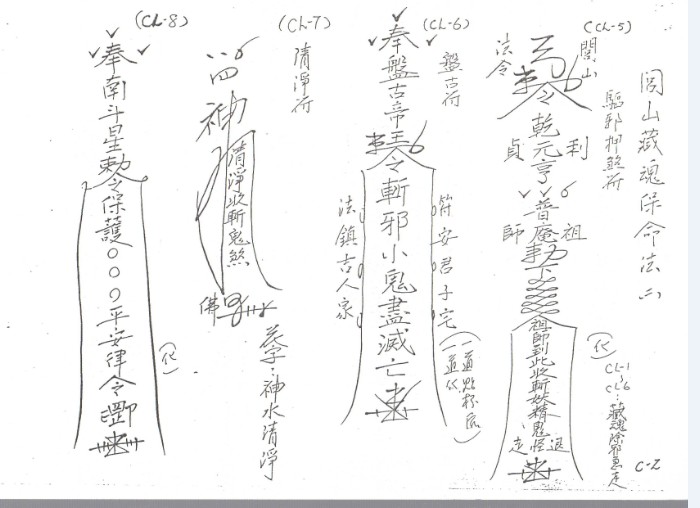 閭山藏魂保命法(二)
驅邪押煞符
(CL-5)
閭山
法令
令乾元亨
利
貞
普庵
祖
師
勅下
祖師到此收斬妖精鬼怪退走
(化)
CL-1
CL-6:藏魂
C-2
(CL-6)
盤古符
奉盤古帝王
勅令斬邪小鬼盡滅亡
符安君子宅
法鎮古人家
(CL-7)
清淨符
神
清淨收斬鬼煞
佛
神水清淨
(CL-8)
奉南斗星勅令保護○○○平安律令
(化)